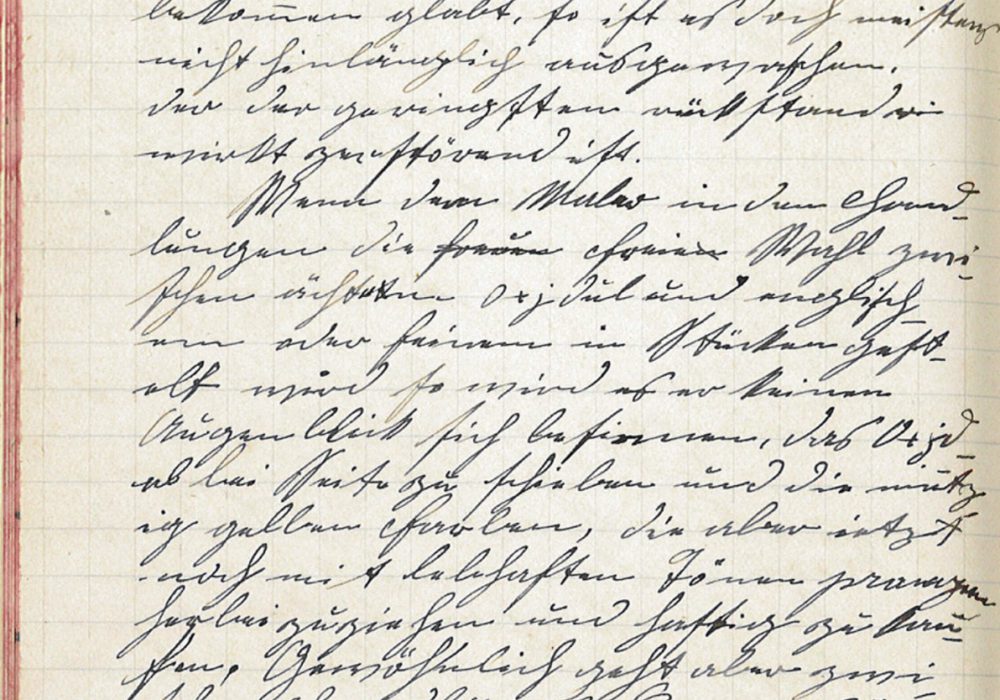 bekommen glabt, so ist es doch meistens
nicht hinlänglich ausgewaschen.
der der geringsten rückstand
wirkt zerstörend ist.
Wenn dem Maler in den Hand-
lungen die freien Wahl zwi-
schen ächten Oxjdul und englisch-
em oder feinem in Stücken gest-
elt wird so wird es er keinen
Augenblick sich besinnen, das Oxjd
bei Seite zu schieben und die
ig gelben Farben, die aber ietzt
noch mit lebhaften Tönen prangen
herbei zu ziehen und hastig zu kau-
fen, Gewöhnlich geht aber zwi